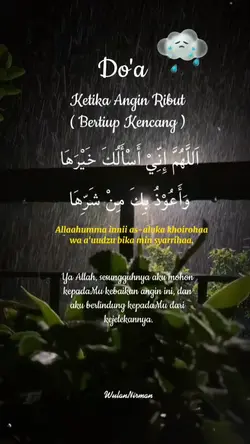 Do'a
Ketika Angin Ribut
( Bertiup Kencang )
اَللَّهُمَّ إِنِّيْ أَسْأَلُكَ خَيْرَهَا
وَأَعُوْذُ بِكَ مِنْ شَرِّهَا
Allaahumma innii as-aluka khoirohaa
wa a'uudzu bika min syarrihaa,
Ya Allah, sesungguhnya aku mohon
kepadaMu kebaikan angin ini, dan
aku berlindung kepadaMu dari
kejelekannya.
WulanNirman